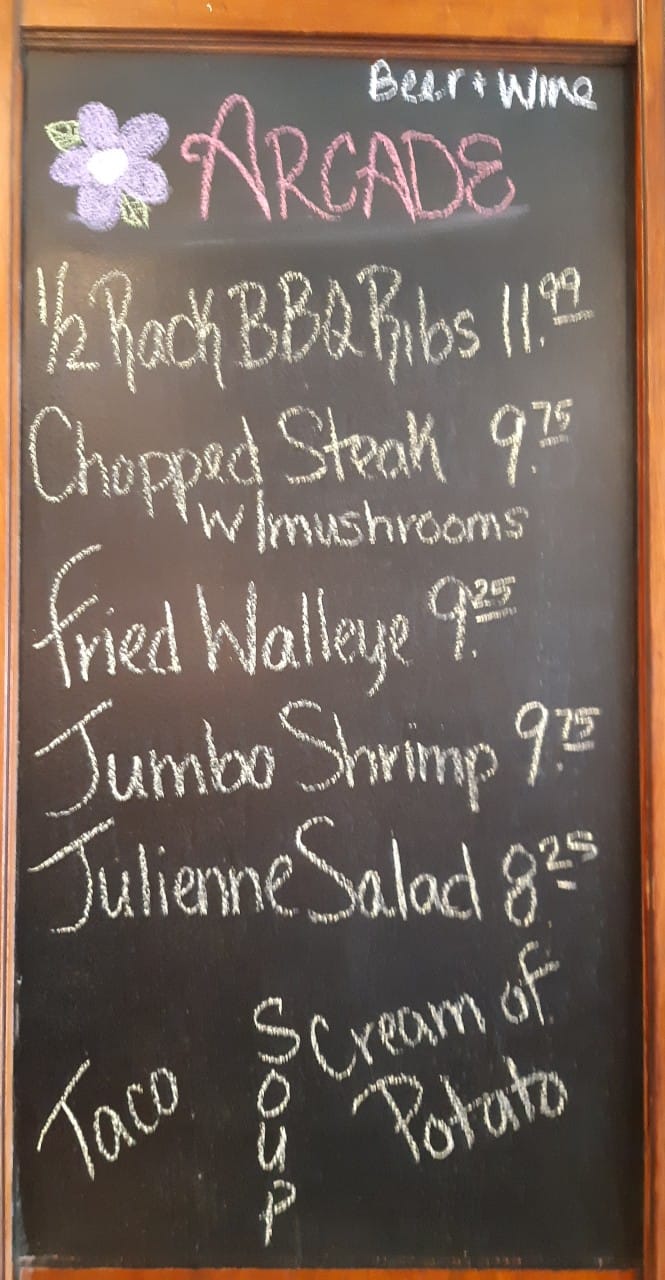 Beer + Wine
ARCADE
1/2 Rack BBQ Ribs 11.99
Chopped Steak 9.75
w/mushrooms
Fried Walleye 9.25
Jumbo Shrimp 9.75
Julienne Salad 8.25
SOUP
Taco
Cream of
Potato